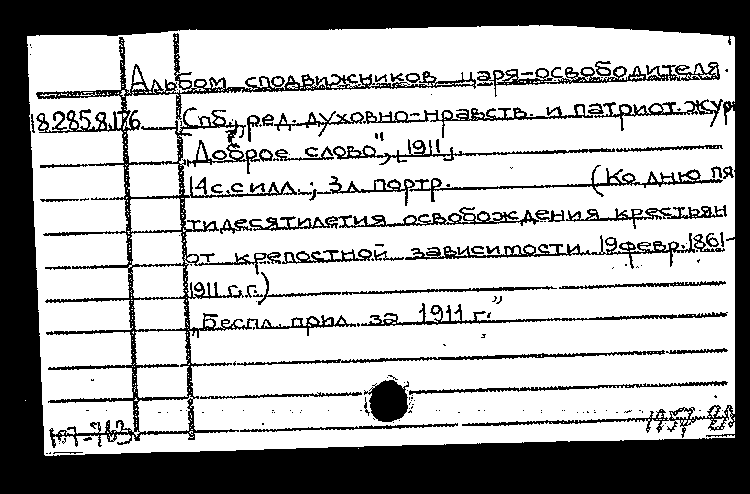 Альбом сподвижников царя-освободителя.
18.285.8.176 Спб., ред. духовно-нравств. и патриот. жур
„Доброе слово", [1911].
14 с. с илл.; 3 л. портр. (Ко дню пя-
тидесятилетия освобождения крестьян
от крепостной зависимости 19 февр. 1861-
1911 г.г.)
„Беспл. прил. за 1911 г."
107-763